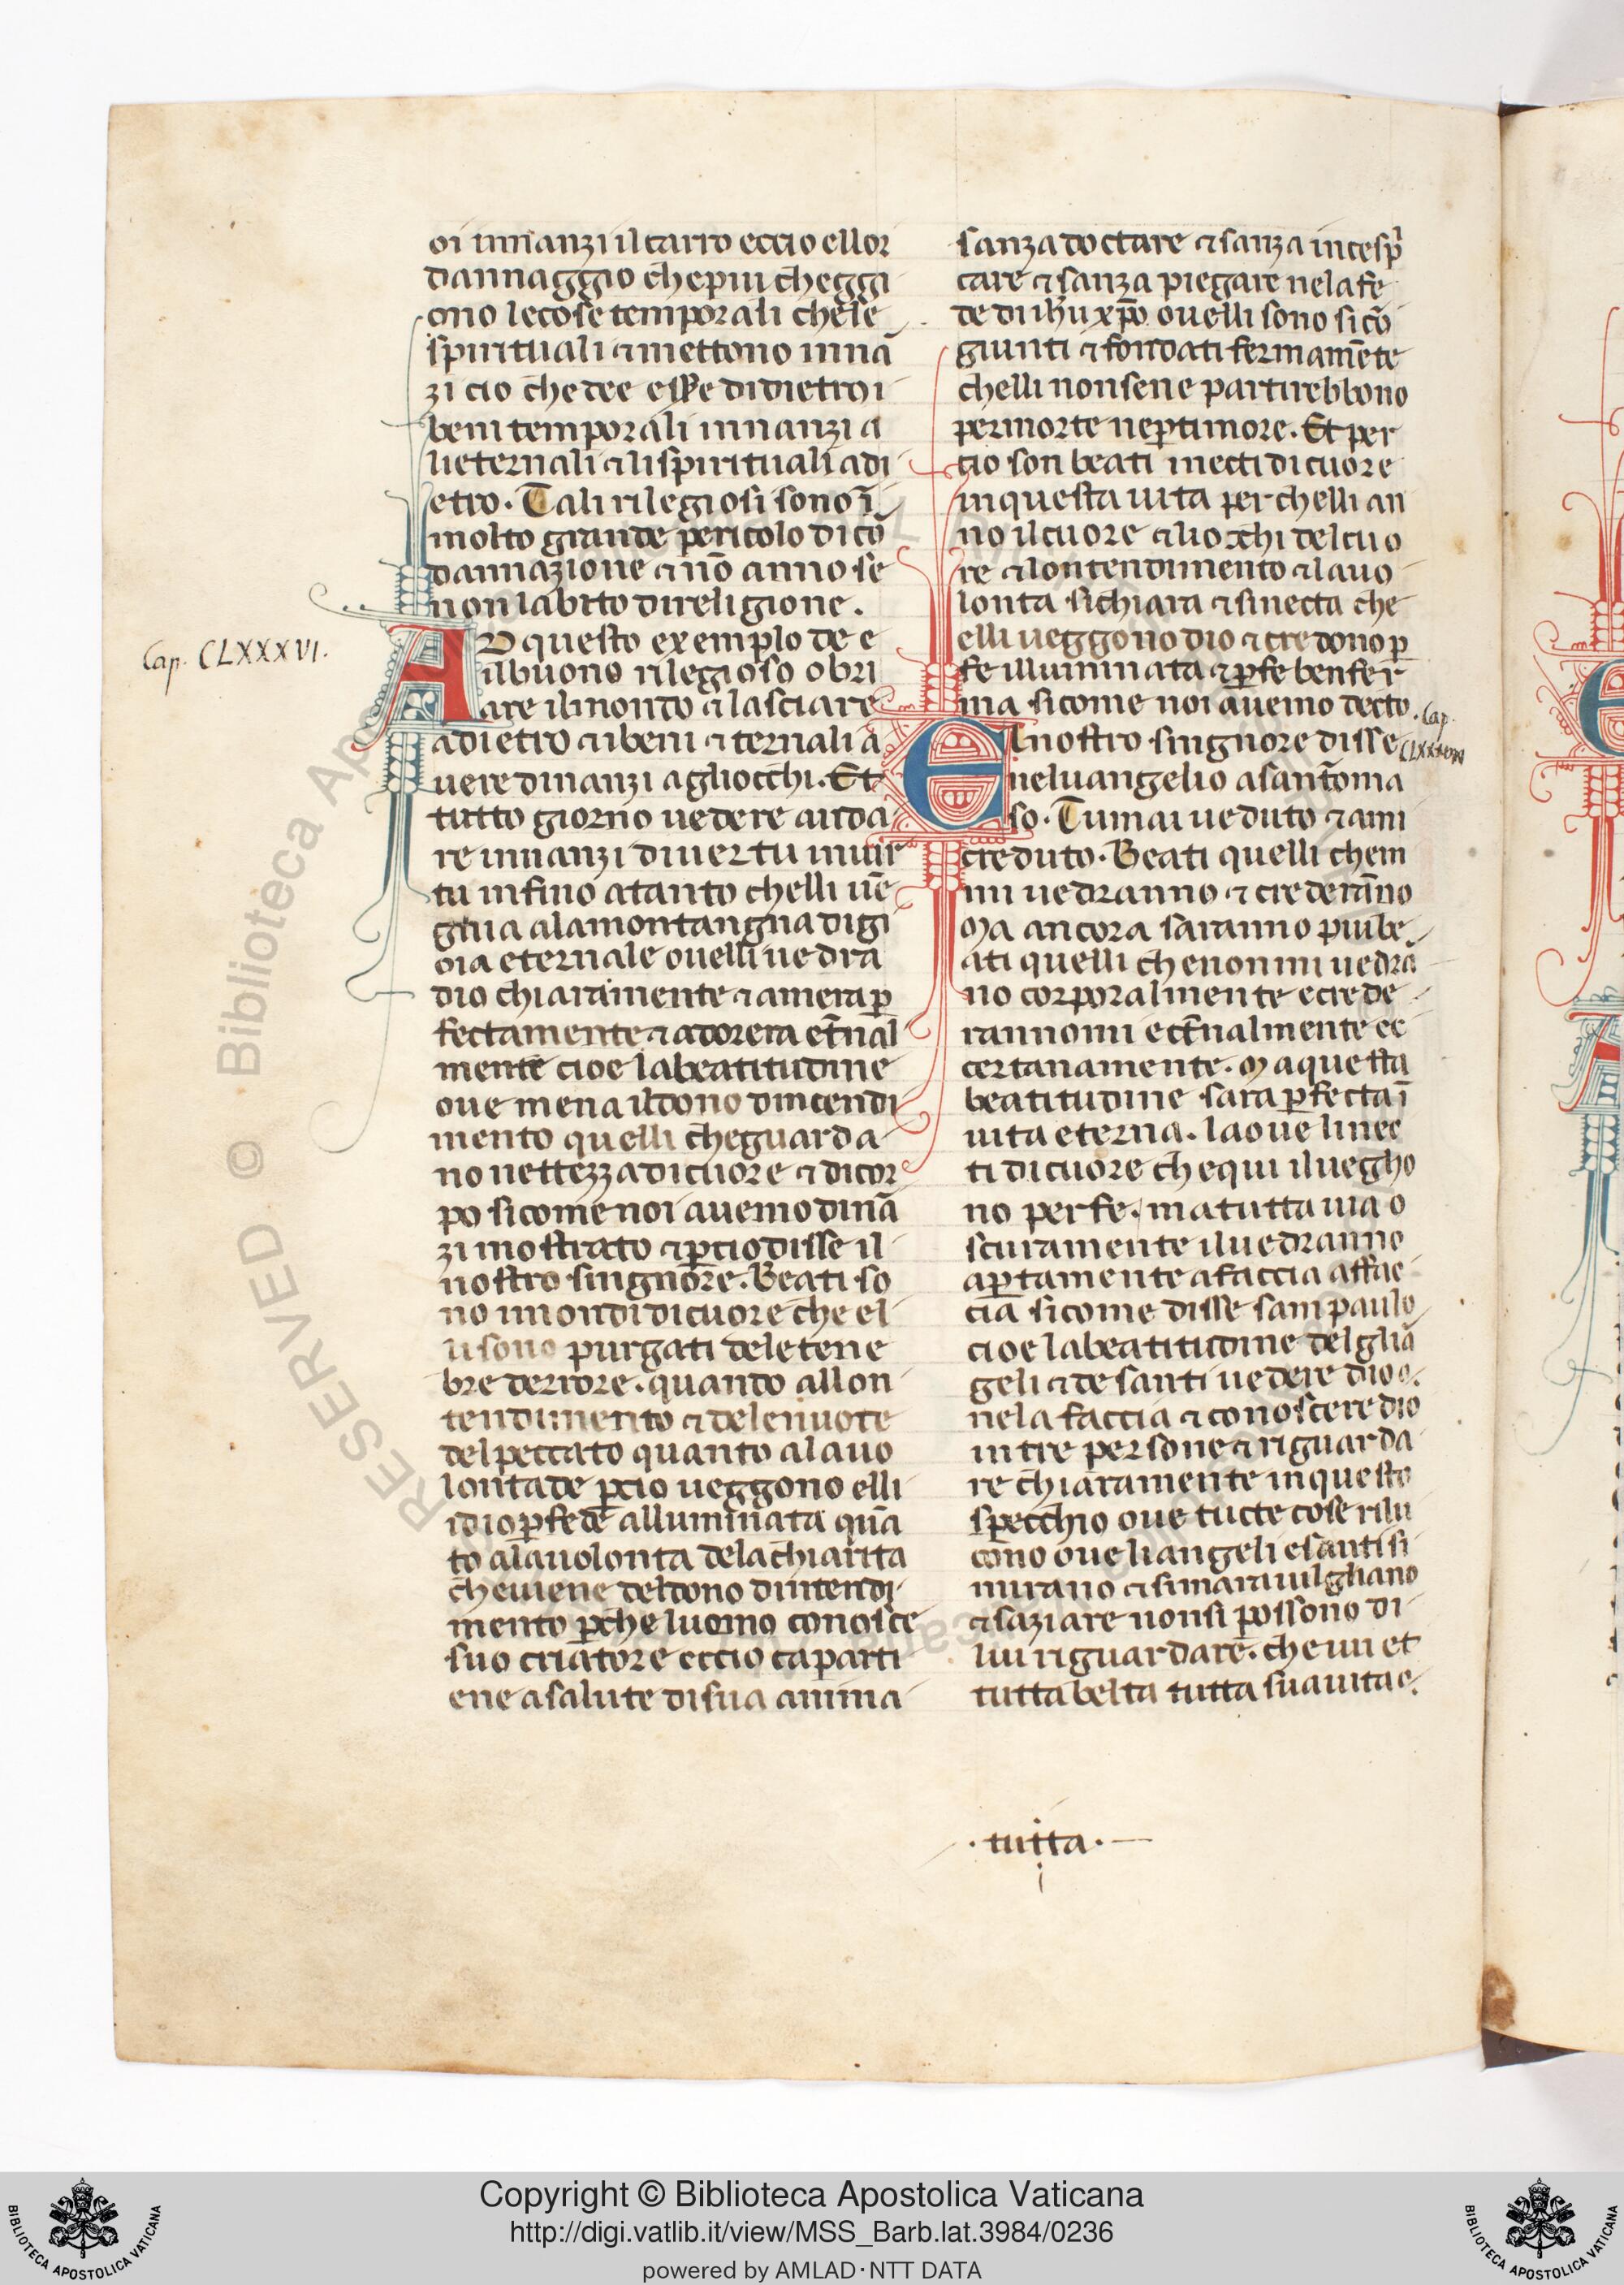 oi innanzi il carro eccio ellor
dannaggio che piu cheggi
ono lecose temporali chele
spirituali ⁊ mettono innā
zi cio che dee esse didietro i
beni temporali innanzi a
lieternali ⁊ li spirituali adi
etro. Tali rilegiosi sono ī
molto grande pericolo di cō
dannazione ⁊ nō anno se
non labito di religione.
Cap. CLXXXVI.
AD questo exemplo de e
il buono rilegioso obri
are il mondo ⁊ lasciare
adietro ⁊ i beni ⁊ternali a
vere dinanzi agliocchi. Et
tutto giorno uedere anda
re innanzi di uertu in uir
tu infino atanto chelli uē
gnia ala montangna di gi
oia eternale ouelli uedra
dio chiaramente ⁊ amera p̄
fectamente ⁊ adorera et̄nal
mente cioe la beatitudine
oue mena il dono dintendi
mento quelli che guarda
no nettezza di cuore ⁊ di cor
po sicome noi auemo dinā
zi mostrato ⁊ p̄cio disse il
nostro singnore. Beati so
no imondi di cuore che el
li sono purgati dele tene
bre derrore. quando allon
tendimento ⁊ dele nuote
del peccato quanto ala uo
lontade p̄cio ueggono elli
idio p̄ fede alluminata quā
to ala uolonta dela chiarita
che uiene del dono dintendi
mento p̄che luomo conosce
suo criatore eccio caparti
ene asalute di sua anima
sanza doctare ⁊ sanza incesp̄
care ⁊ sanza piegare nela fe
de di ihū xp̄o ouelli sono si cō
giunti ⁊ fondati fermamēte
chelli non sene partirebbono
per morte ne p̄ timore. Et per
cio son beati inecti di cuore
in questa uita per chelli an
no il cuore ⁊ liocchi del cuo
re ⁊ lontendimento ⁊ la uo
lonta si chiara ⁊ si necta che
elli ueggono dio ⁊ credono p̄
fe illuminata ⁊ p̄ fe ben fer
ma sicome noi auemo decto.
Cap.
El nostro singnore disse
neluangelio a san toma
so. Tu mai ueduto ⁊ ami
creduto. Beati quelli chem
mi uedranno ⁊ crederāno
Ma ancora saranno piu be
ati quelli che non mi uedrā
no corporalmente e crede
rannomi et̄nalmente ee
certanamente. Ma questa
beatitudine sara p̄fecta ī
uita eterna. la oue li nec
ti di cuore che qui il uegho
no per fe. ma tutta uia o
scuramente il uedranno
ap̄tamente a faccia affac
cia sicome disse sam paulo
cioe la beatitudine del gliā
geli ⁊ de santi uedere dio
nela faccia ⁊ conoscere dio
in tre persone ⁊ riguarda
re chiaramente in questo
specchio oue tucte cose rilu
cono oue li angeli e santi si
mirano ⁊ si marauigliano
⁊ saziare non si possono di
lui riguardare. che iui et
tutta belta tutta suauitae.
. tutta .
RESERVED © Biblioteca Apostolica Vaticana
Copyright © Biblioteca Apostolica Vaticana
http://digi.vatlib.it/view/MSS_Barb.lat.3984/0236
powered by AMLAD·NTT DATA
BIBLIOTECA APOSTOLICA VATICANA
BIBLIOTECA APOSTOLICA VATICANA